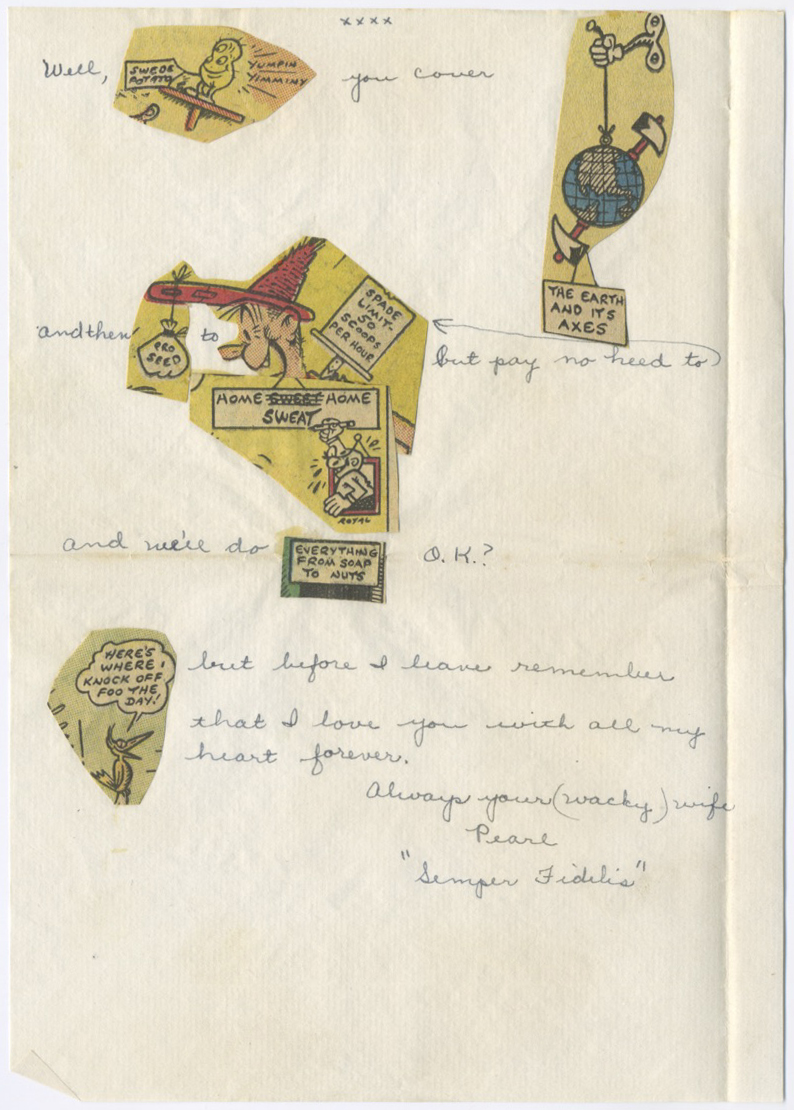 xxxx
Well,
SWEDE
POTATO
YUMPIN
YIMMINY
you cover
THE EARTH
AND ITS
AXES
and then
PRO
SEED
to
SPADE
LIMIT-
50
SCOOPS
PER HOUR
but pay no heed to
HOME SWEET HOME
SWEAT
ROYAL
and we'll do
EVERYTHING
FROM SOAP
TO NUTS
O.K.?
HERE'S
WHERE I
KNOCK OFF
FOO THE
DAY!
but before I leave remember
that I love you with all my
heart forever.
Always your (wacky) wife
Pearl
"Semper Fidelis"